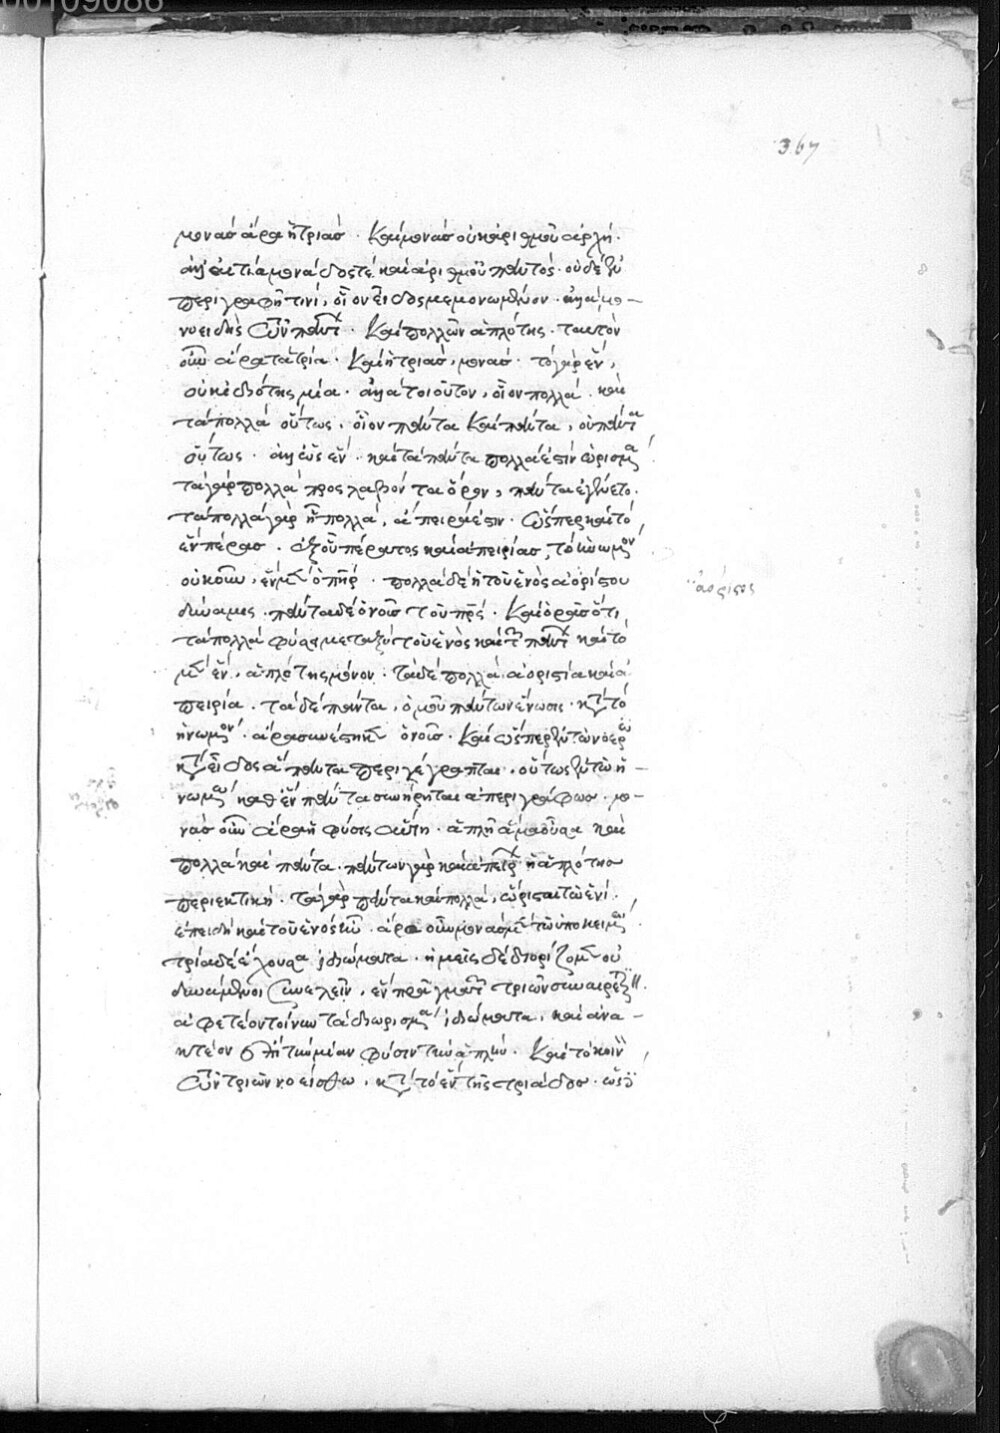 00109086
367
μονὰς ἄρα ἡ τριάς. καὶ μονὰς οὐκ ἀριθμοῦ ἀρχή.
ἀλλ' αἰτία μονάδος τὲ καὶ ἀριθμοῦ παντός. οὐδὲ ξὺ
περιγραφῇ τινί, οἷον εἶδος μεμονωμένον. ἀλλὰ μο-
νοειδὴς παντ. καὶ πολλῶν ἁπλότης. ταυτὸν
οὖν ἄρα τὰ τρία. καὶ ἡ τριὰς, μονάς. τὸ γὰρ ἓν,
οὐκ ἰδιότης μία. ἀλλὰ τοιοῦτον, οἷον πολλά. καὶ
τὰ πολλὰ οὕτως, οἷον πάντα καὶ πάντα, οὐ πάντα
οὕτως. ἀλλ' ὡς ἕν. καὶ τὰ πάντα πολλά ἐστιν ὡρισμα
τὰ γὰρ πολλὰ προσλαβόντα ὅρον, πάντα ἐγένετο.
τὰ πολλὰ γὰρ ᾗ πολλά, ἄπειρά ἐστιν. ὥσπερ καὶ τὸ
ἓν πέρας. ἐξ οὗ πέρατος καὶ ἀπειρίας, τὸ ἡνωμον
οὐκοῦν, ἓν μὲν ὁ πηρ. πολλὰ δὲ ἡ τοῦ ἑνὸς ἀορίστου
δύναμις. πάντα δὲ ὁ νοῦς τοῦ πρς. καὶ ὁρᾷς ὅτι
τὰ πολλὰ φύσει μεταξὺ τοῦ ἑνὸς καὶ τ παντ καὶ τὸ
μὲν ἓν, ἁπλότης μόνον. τὰ δὲ πολλὰ ἀοριστία καὶ ἀ
πειρία. τὰ δὲ πάντα, ὁμοῦ πάντων ἕνωσις. κατὰ τὸ
ἡνωμον. ὁ νοῦς. καὶ ὥσπερ ξὺ τῶ νοερῶ
κατ' εἶδος ἅπαντα περιγέγραπται, οὕτως ξὺ τῶ ἡ-
νωμω καθ' ἓν πάντα συνήρηται ἀπεριγράφως. μο-
νὰς οὖν ἄρα ἡ φύσις αὕτη. ἁπλῆ ἅμα οὖσα καὶ
πολλὰ καὶ πάντα. πάντων γὰρ καὶ ἀπείρ ἡ ἁπλότης
περιεκτική. τὰ γὰρ πάντα καὶ πολλά, ὥρισται τῶ ἑνί.
ἐπειδὴ καὶ τοῦ ἑνός ἄρα οὖν μονὰς μὲν τῶ ὑποκειμω
τριὰς δὲ ἔχουσα ἰδιώματα. ἡμεῖς δὲ διοριζομεν οὐ
δυνάμενοι συνελεῖν, ἓν πρᾶγμα τριῶν
ἀφετέον τοίνυν τὰ διωρισμα ἰδιώματα, καὶ ἀνα-
κτέον ἐπὶ τὴν μίαν φύσιν τὴν ἁπλῆν. καὶ τὸ κοινὸν
τριῶν νοείσθω, κατὰ τὸ ἓν τῆς τριάδος.
ἀόριστος